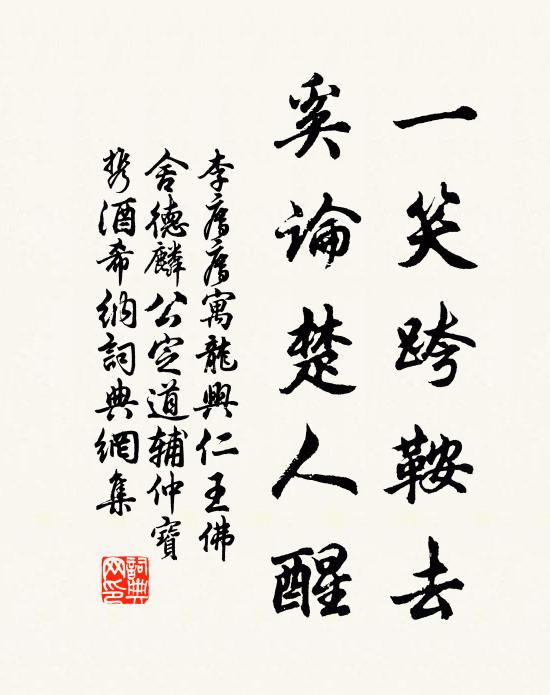 一笑跨鞍去
奚论楚人醒
李廌廌寓龍興仁王佛
舍德麟公定道辅仲寶
携酒希纳詞典網集
詞典网印